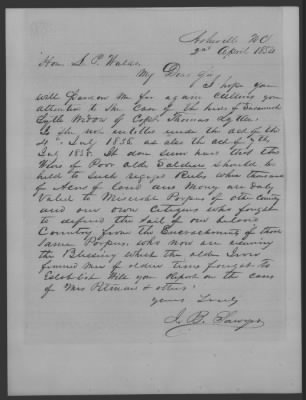 Asheville N.C.
2nd April 1850
Hon. L. P. Waldo
My Dear Sir,
I hope you
will Pardon Me for again Calling your
attention to the Case of the heirs of Susannah
Lytle Widow of Capt. Thomas Lytle.
Is she not entitled under the act of the
4th July 1836. as also the act of 7th
July 1838. It dose seem hard that the
Heirs of Poor olde Soldiers should be
held to such rigid Rules when thousands
of Acres of land and Money are
to of other country
and our own Citizens who fought
to defend the Soil of our beloved
Country from the Encroachments of those
Same who now are enjoying
the Blessing which the olde Iron
framed Men of olden times fought to
Establish Will you Report on the Case
of Mrs Pitman & others!
Yours Truly
J. B. Sawyer